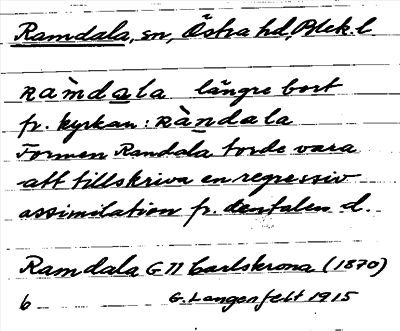 Ramdala, sn, Östra hd, Blek. l
ràmdala längre bort
fr. kyrkan: ràndala
Formen Randala torde vara
att tillskriva en regressiv
assimilation fr. dentalen d.
Ramdala G Π Carlskrona (1870)
6 G. Langenfelt 1915